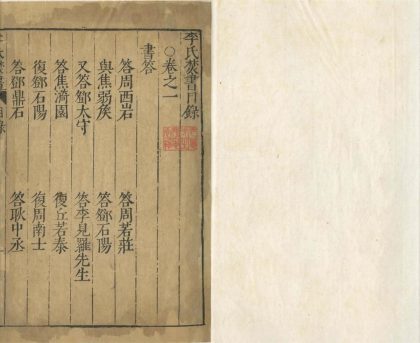 李氏焚書目錄
○卷之一
書答
答周西岩
答周若莊
與焦弱侯
答鄧石陽
又答鄧太守
答李見羅先生
答焦漪園
復丘若泰
復鄧石陽
復周南士
答鄧鼎石
答耿中丞